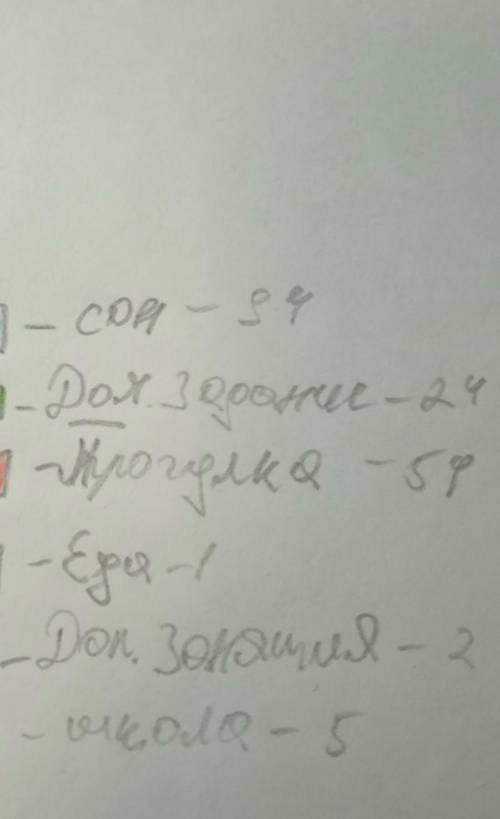 - сон - 9 ч
- Дом. Задание - 2 ч
- Прогулка - 5 ч
- Еда - 1
- Доп. Занятия - 2
- школа - 5